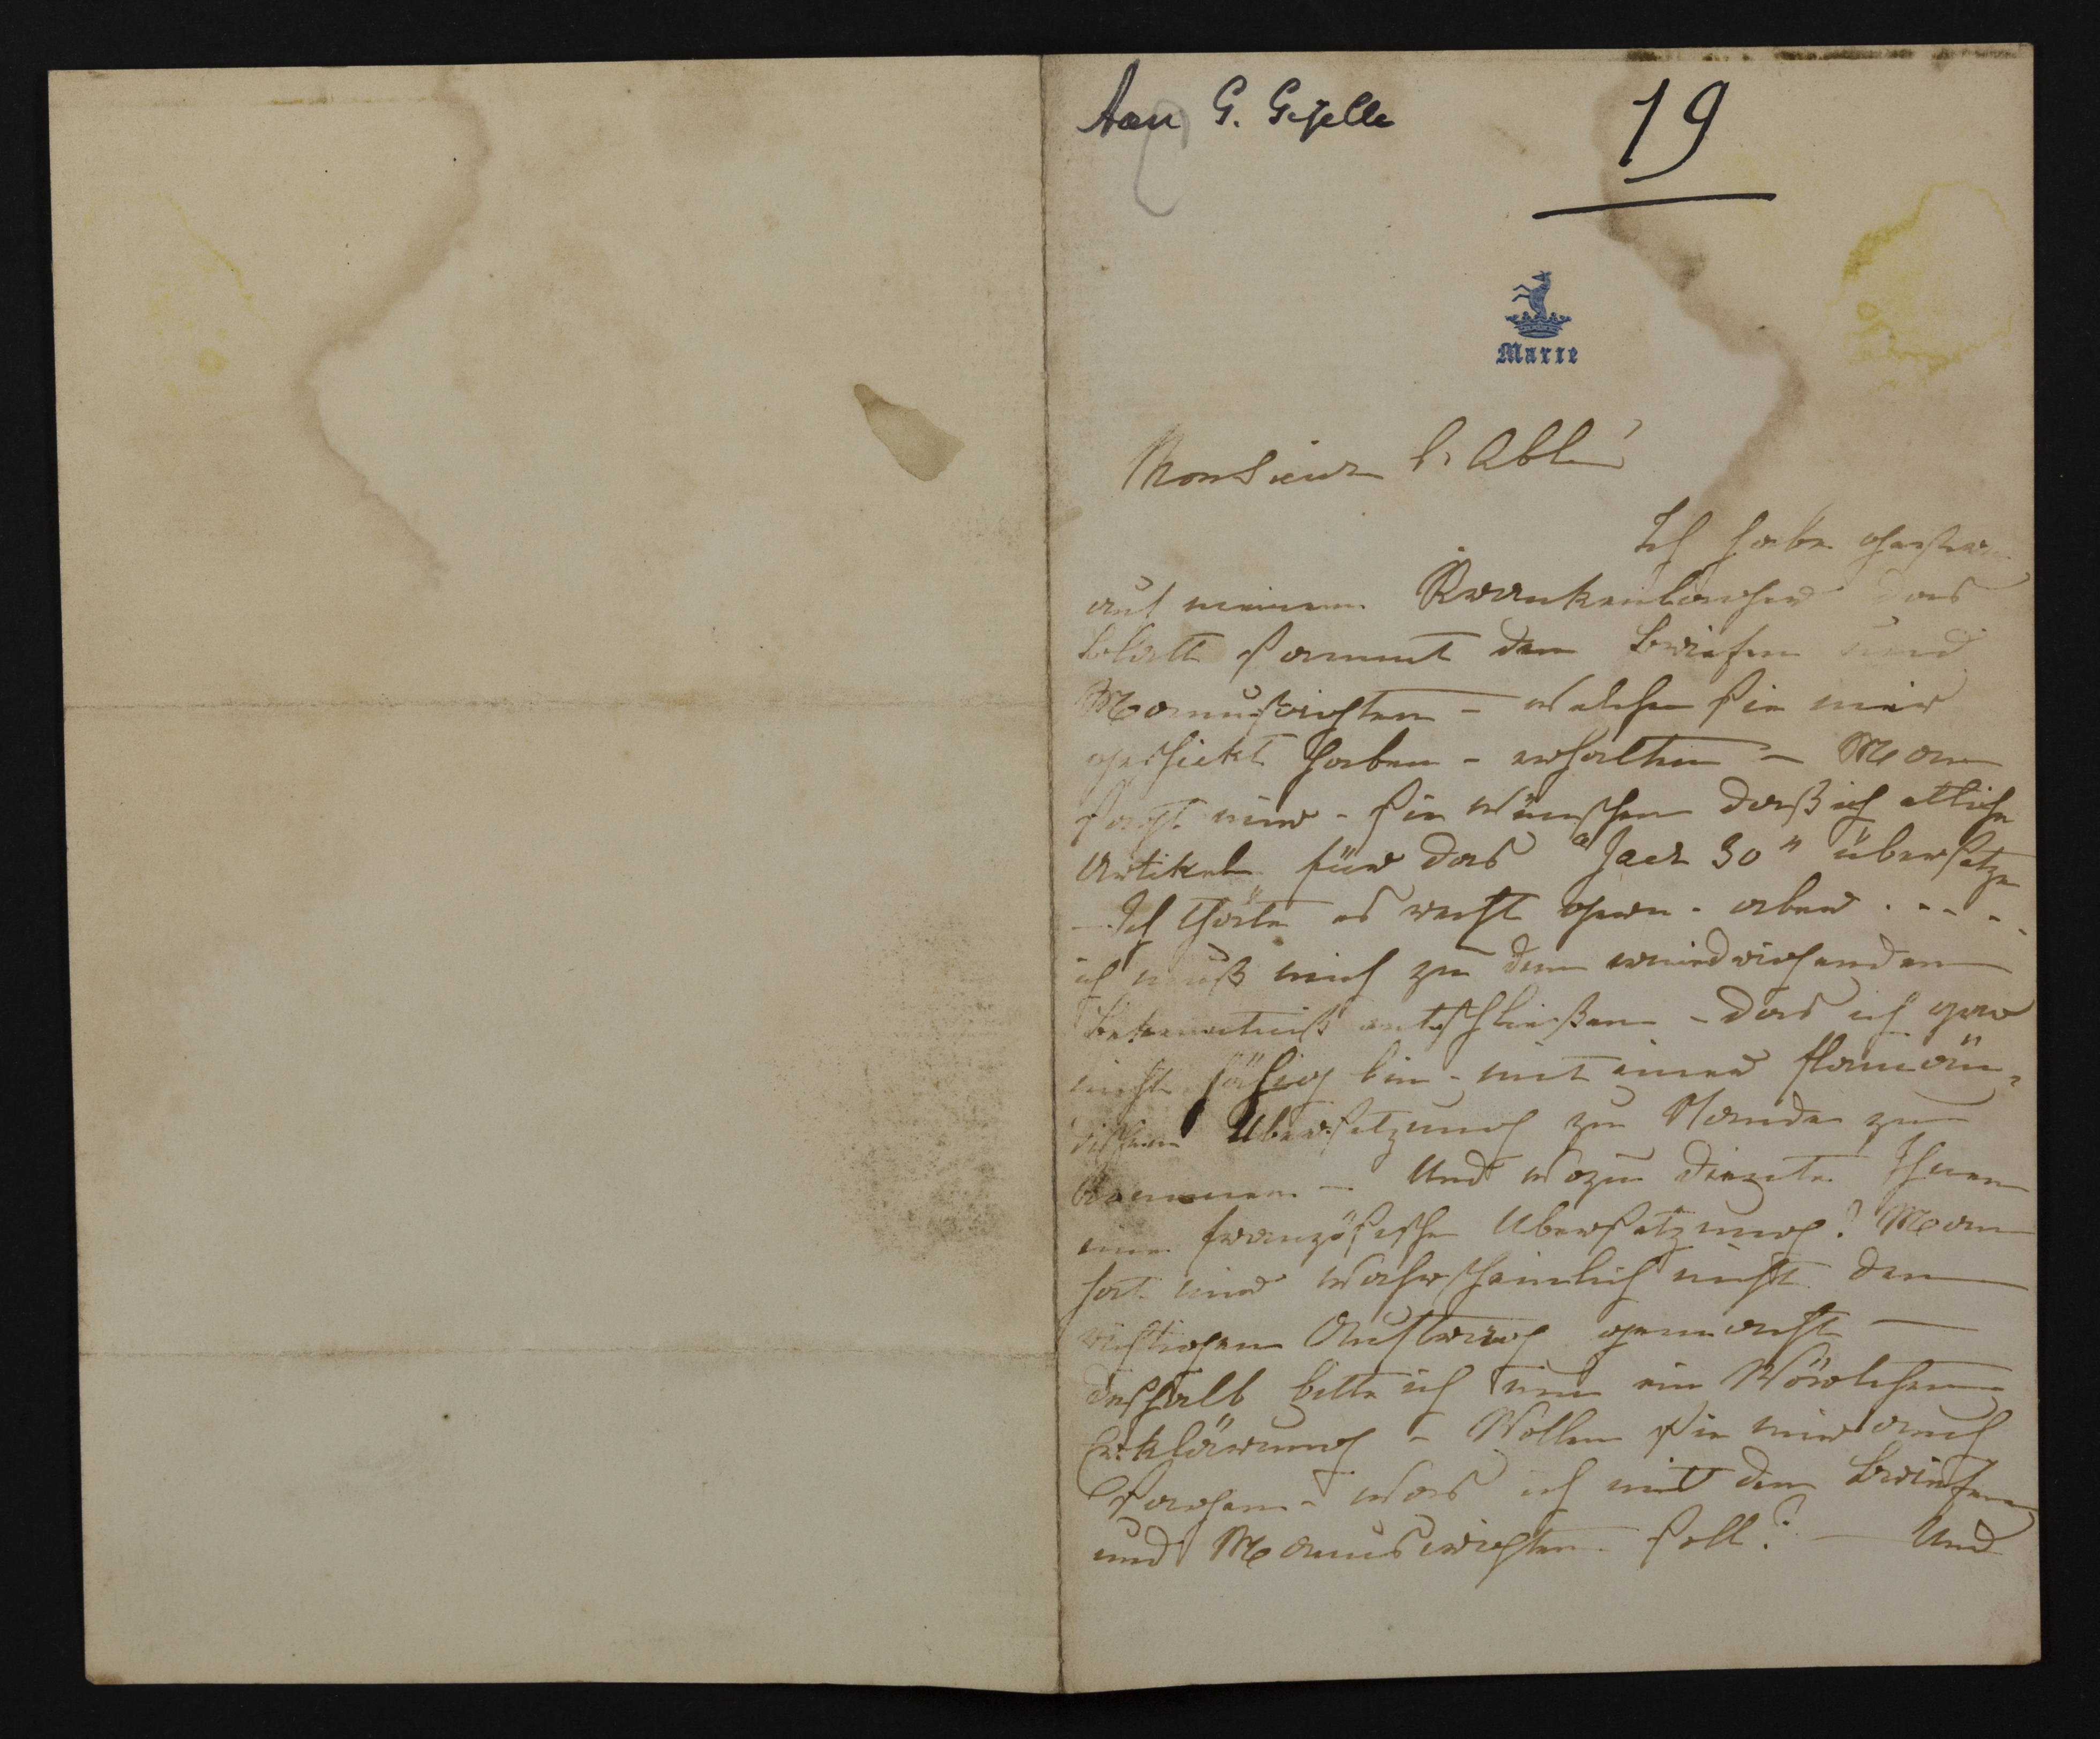 Aan G. Gezelle
19
Marie
Monsieur l'Abbé
Ich habe gestern
auf meinem Krankenlager das
Blatt sammt den Briefen und
Manuskripten – welche sie mir
geschickt haben – erhalten – Man
sagt mir – sie wünschen daß ich etliche
Artikel für das "Jaer 30" übersetze
– Ich thäte es recht gern – aber . . . .
ich muß mich zu dem erniedrigenden
Bekenntniß entschließen – das ich gar
nicht fähig bin – mit einer flamän-
dischen Übersetzung zu Stande zu
kommen – Und wozu diente Ihnen
eine französische Übersetzung? Man
hat mir wahrscheinlich nicht den
richtigen Auftrag gemacht –
deshalb bitte ich um ein Wörtchen
Erklärung – Wollen sie mir auch
sagen – was ich mit den Briefen
und Manuscripten soll? – Und